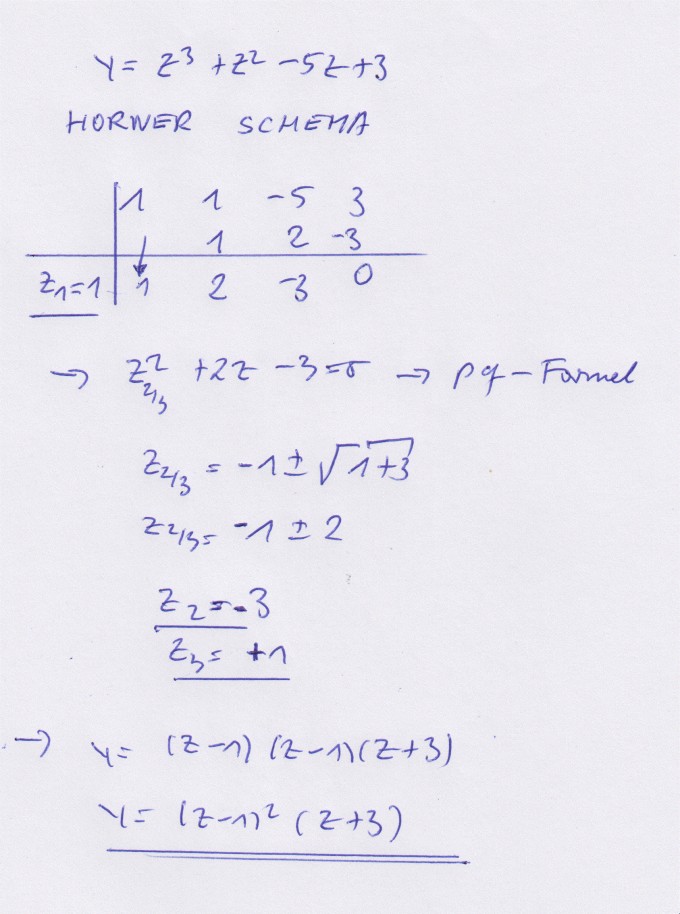 y = z³ + z² - 5z + 3
HORNER SCHEMA
1 1 -5 3
↓ 1 2 -3
z₁=1 1 2 -3 0
→ z²₂/₃ + 2z - 3 = 0 → pq-Formel
z₂/₃ = -1 ± √1+3
z₂/₃ = -1 ± 2
z₂ = -3
z₃ = +1
→ y = (z-1) (z-1)(z+3)
y = (z-1)² (z+3)